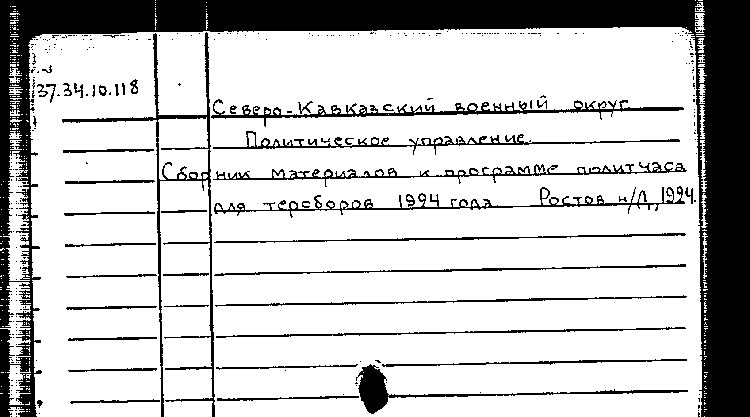 37.34.10.118
Северо-Кавказский военный округ
Политическое управление.
Сборник материалов к программе политчаса
для терсборов 1924 года. Ростов н/Д, 1924.